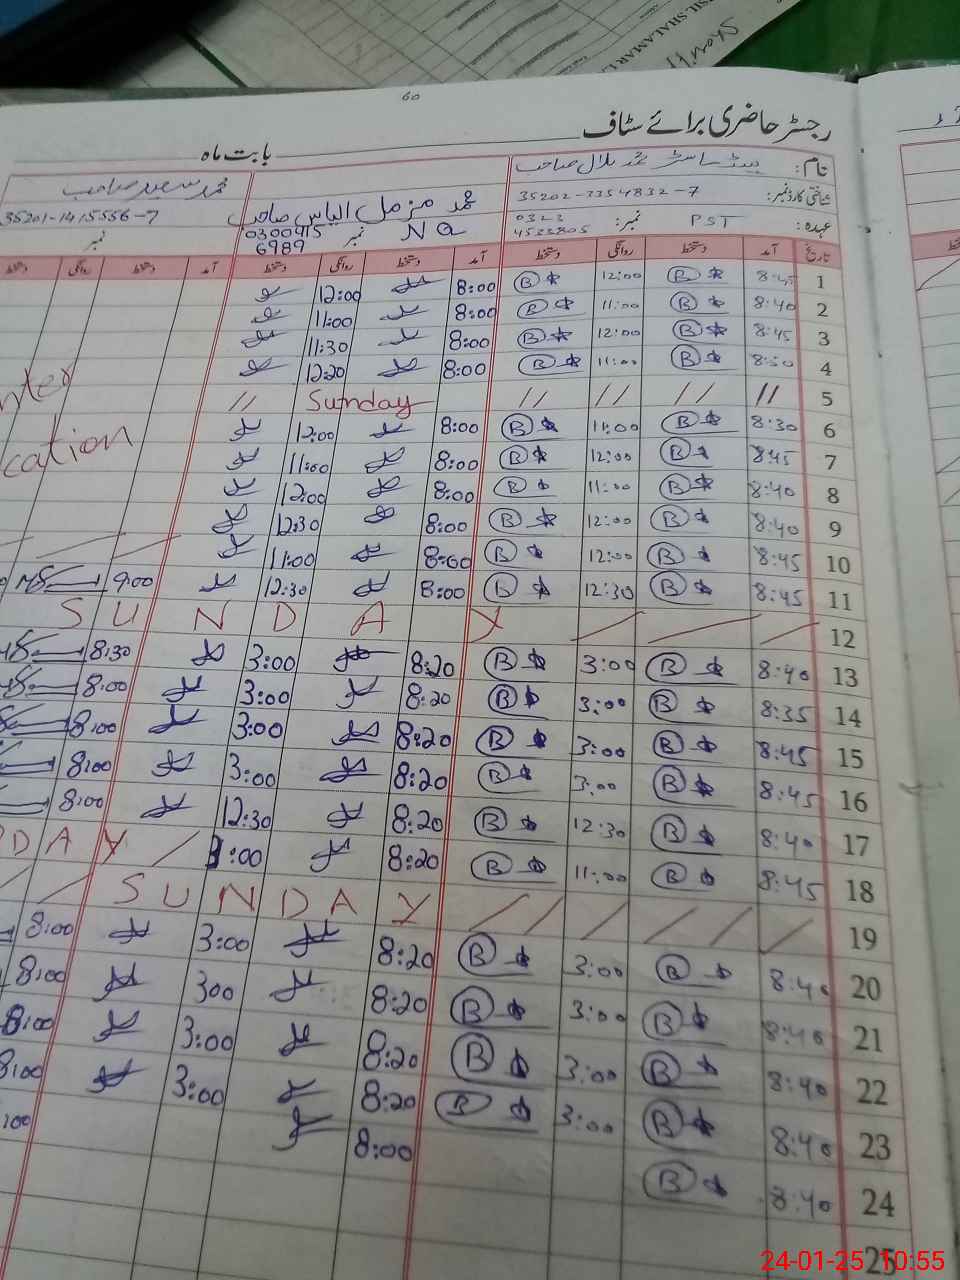 60
رجسٹر حاضری برائے سٹاف
بابت ماہ
نام: ہیڈ ماسٹر محمد بلال صاحب
محمد مزمل الیاس صاحب
محمد سعید صاحب
شناختی کارڈ نمبر: 35202-3354832-7
35201-1415556-7
عہدہ: PST نمبر: 0323 4532805
NQ نمبر 0300415 6989
نمبر
تاریخ آمد دستخط روانگی دستخط آمد دستخط روانگی دستخط آمد دستخط روانگی دستخط
1 8:45 B 12:00 B 8:00 12:00
2 8:40 B 11:00 B 8:00 11:00
3 8:45 B 12:00 B 8:00 11:30
4 8:50 B 11:00 B 8:00 12:20
5 // // // // Sunday //
6 8:30 B 11:00 B 8:00 12:00
7 8:45 B 12:00 B 8:00 11:00
8 8:40 B 11:00 B 8:00 12:00
9 8:40 B 12:00 B 8:00 12:30
10 8:45 B 12:00 B 8:00 11:00
11 8:45 B 12:30 B 8:00 12:30 9:00
12 SUNDAY
13 8:40 B 3:00 B 8:20 3:00 8:30
14 8:35 B 3:00 B 8:20 3:00 8:00
15 8:45 B 3:00 B 8:20 3:00 8:00
16 8:45 B 3:00 B 8:20 3:00 8:00
17 8:40 B 12:30 B 8:20 12:30 8:00
18 8:45 B 11:00 B 8:20 1:00 DAY
19 SUNDAY
20 8:40 B 3:00 B 8:20 3:00 8:00
21 8:40 B 3:00 B 8:20 300 8:00
22 8:40 B 3:00 B 8:20 3:00 8:00
23 8:40 B 3:00 B 8:20 3:00 8:00
24 8:40 B 8:00 :00
25
24-01-25 10:55